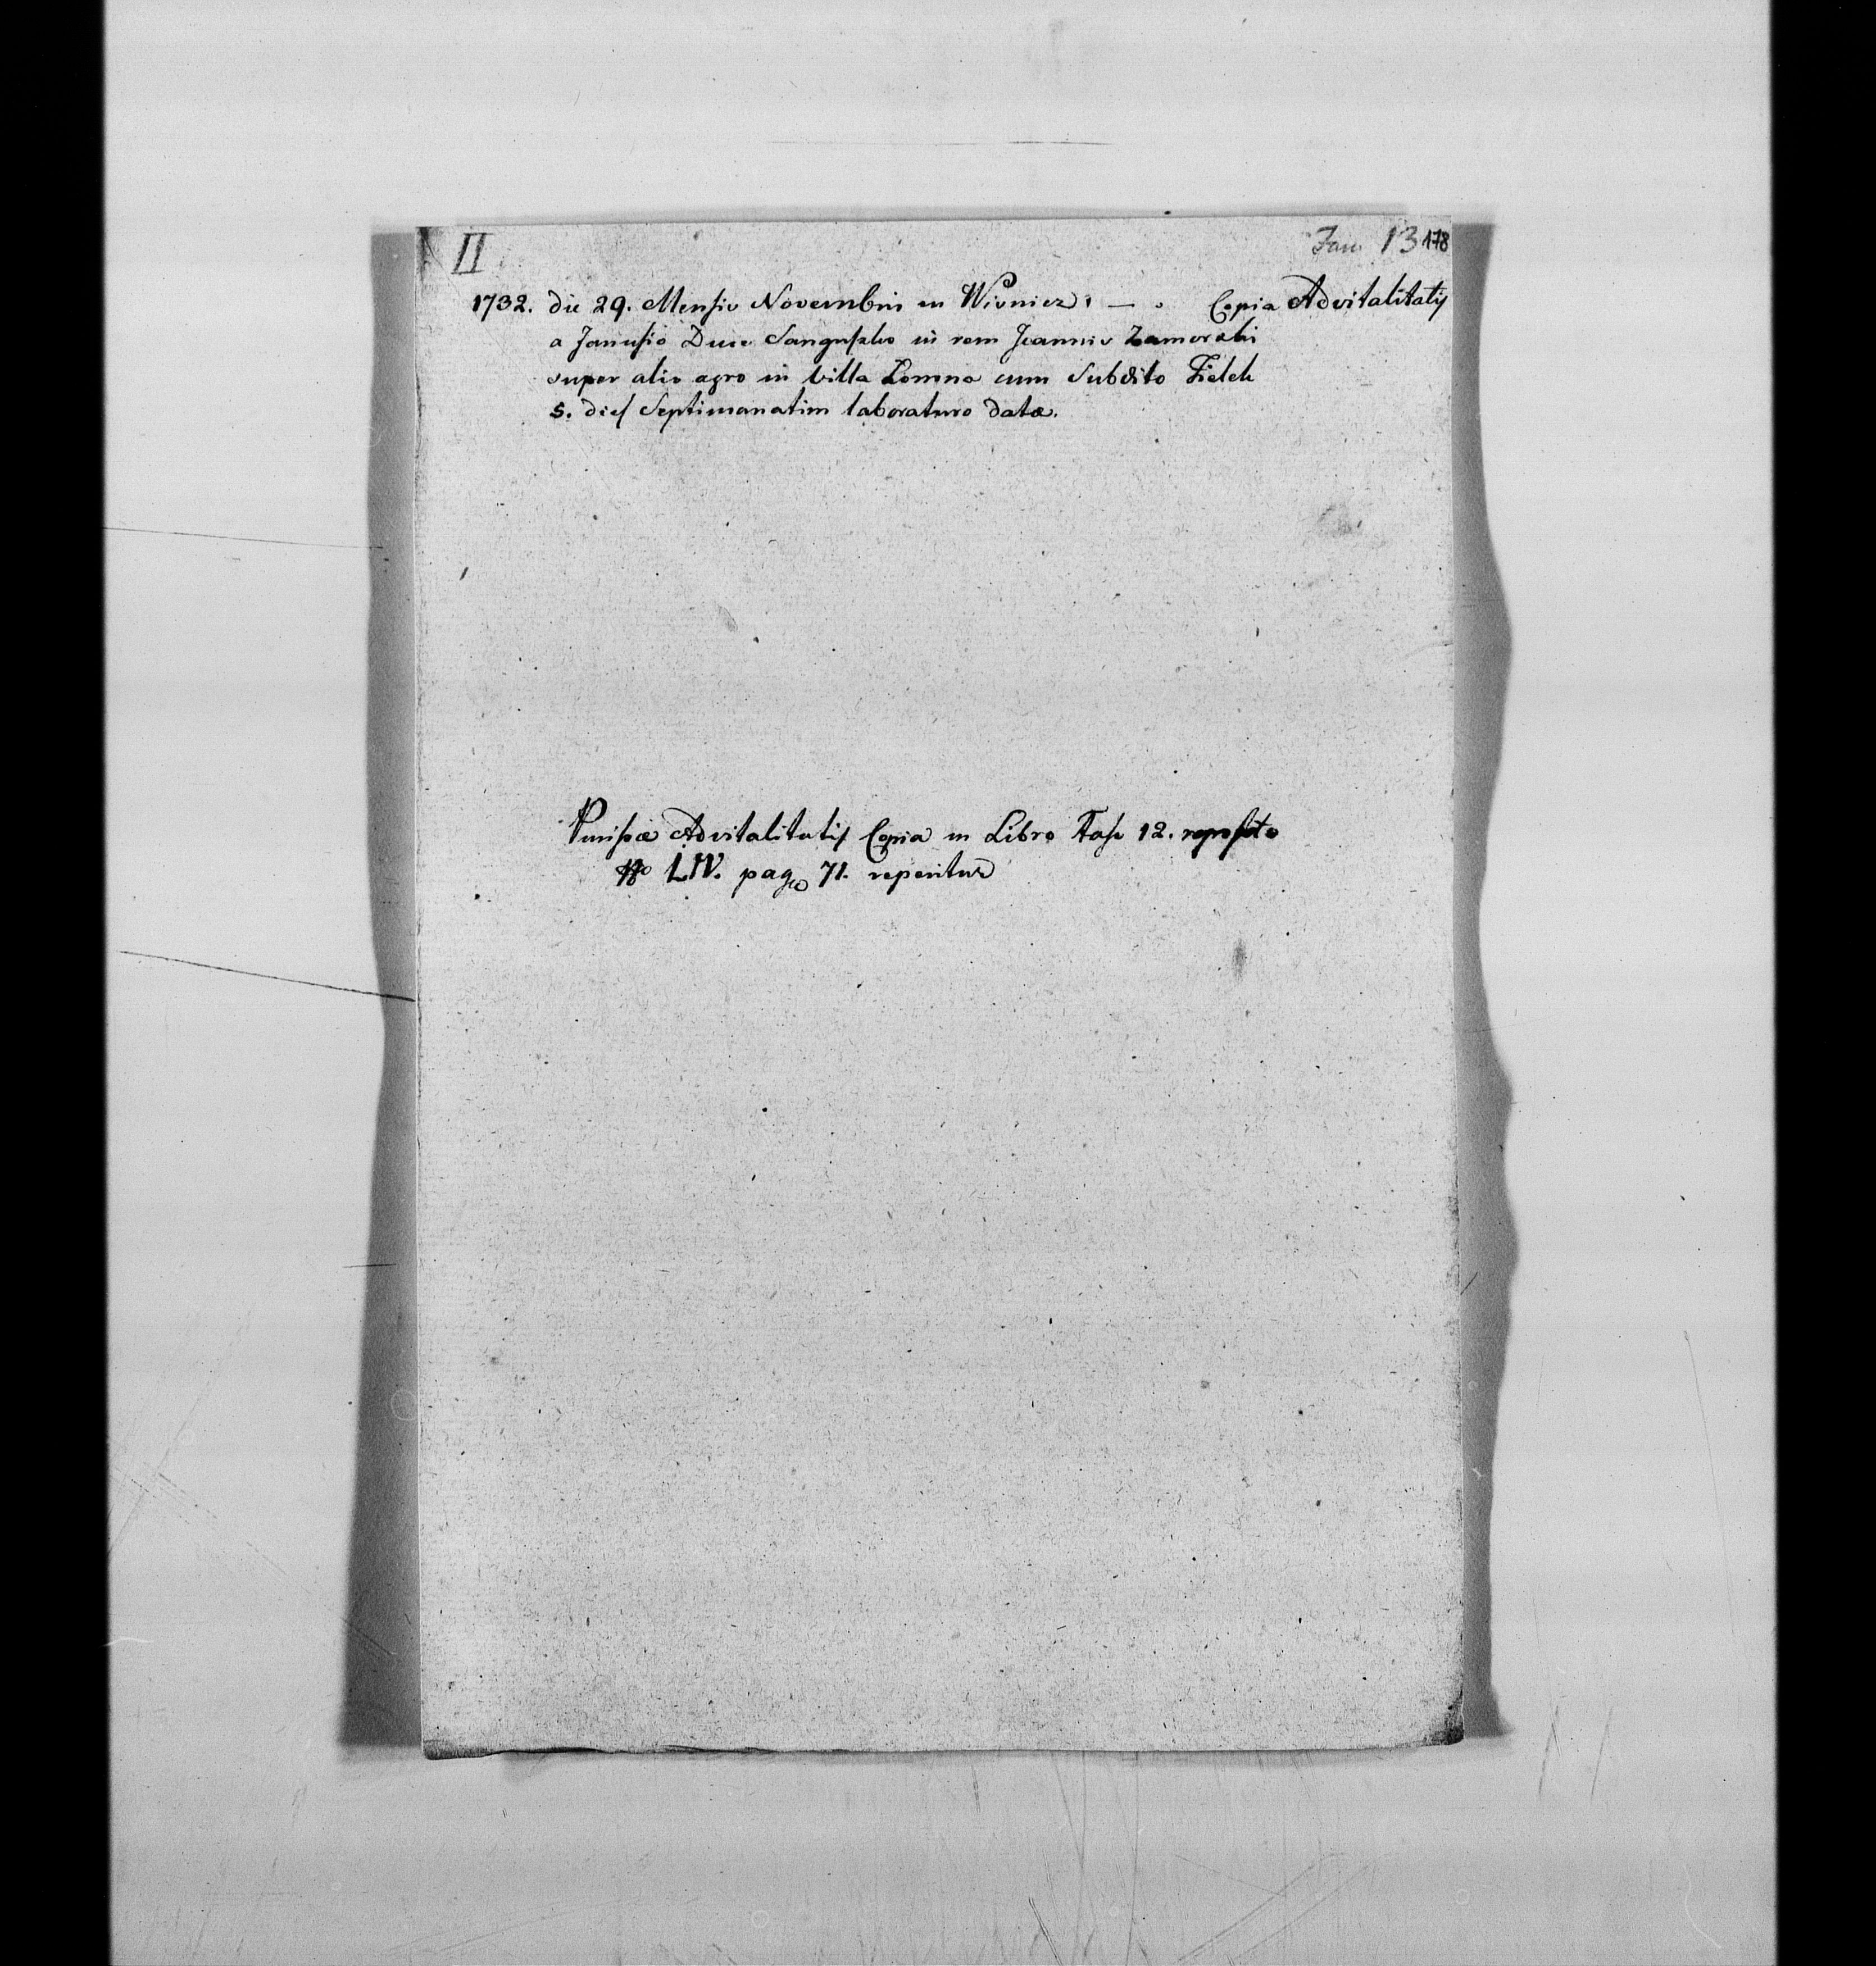 II
Fasc. 13 178
1732. die 29. Mensis Novembris in Wisnicz. — . Copia Advitalitatis
a Janusio Duce Sangusko in rem Joannis Zamorski
super alio agro in Villa Łomna cum Subdito Fielek
5. dies Septimanatim laboraturo datæ.
Advitalitatis Copia in Libro Fasc 12. reposito
No LIV. pag 71. reperitur